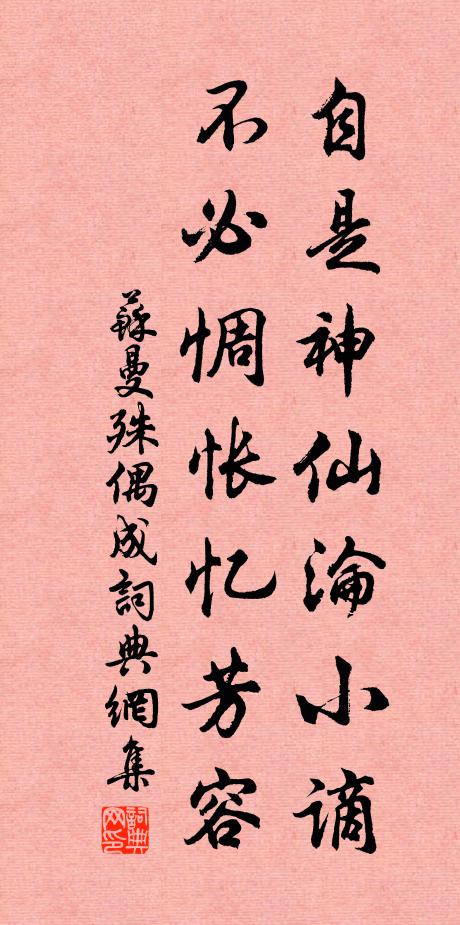 自是神仙淪小謫
不必惆怅忆芳容
蘇曼殊偶成詞典網集
詞典网印